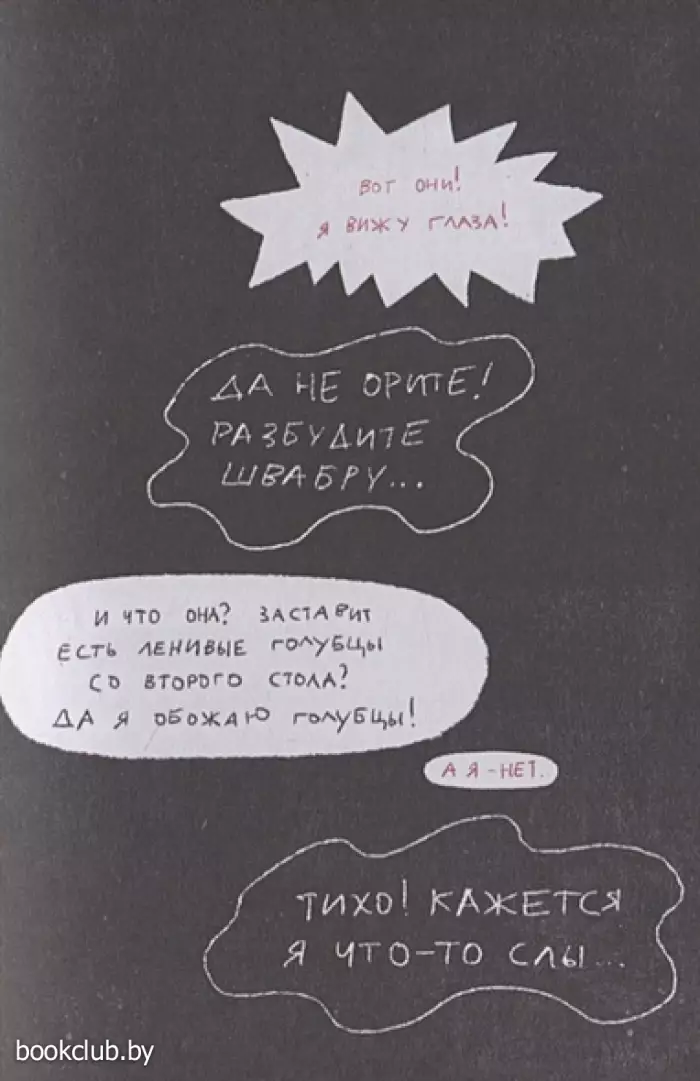 ВОТ ОНИ!
Я ВИЖУ ГЛАЗА!
ДА НЕ ОРИТЕ!
РАЗБУДИТЕ
ШВАБРУ...
И ЧТО ОНА? ЗАСТАВИТ
ЕСТЬ ЛЕНИВЫЕ ГОЛУБЦЫ
СО ВТОРОГО СТОЛА?
ДА Я ОБОЖАЮ ГОЛУБЦЫ!
А Я - НЕТ.
ТИХО! КАЖЕТСЯ
Я ЧТО-ТО СЛЫ...
bookclub.by